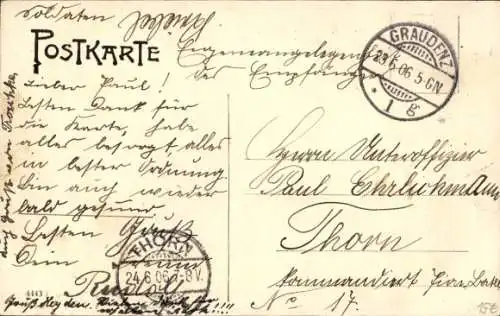 Soldaten
POSTKARTE
Eigenangelegenheit
des Empfängers
GRAUDENZ
23.6.06.5-6N.
* 1 g
Lieber Paul!
Besten Dank für
die Karte, habe
alles besorgt alles
in bester Ordnung.
Bin auch wieder
bald gesund
Besten Gruß
Dein Freund
Rudolf
Herrn Unteroffizier
Paul Ehrlichmann
Thorn
kommandiert
No. 17.
THORN
24.6.06.7-8V.
4443
Gruß Heyden.
15E